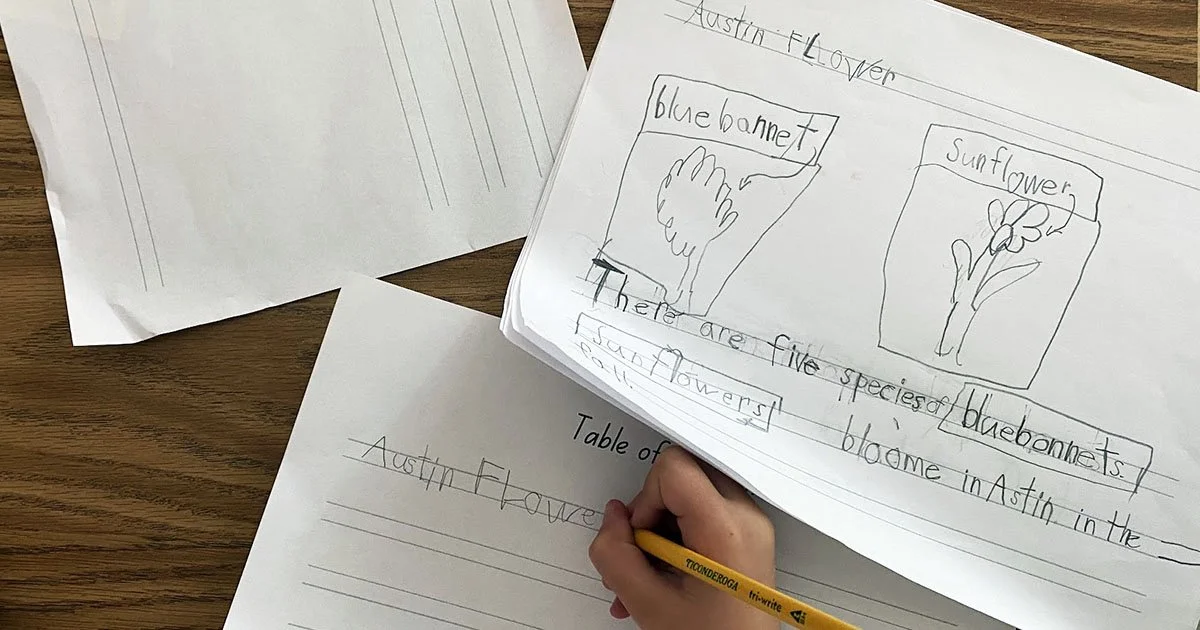 Austin FLower
bluebannet
sunflower
There are five species of bluebonnets.
sunflowers bloome in Astin in the
fall.
Table of
Austin FLowe
TICONDEROGA tri-write